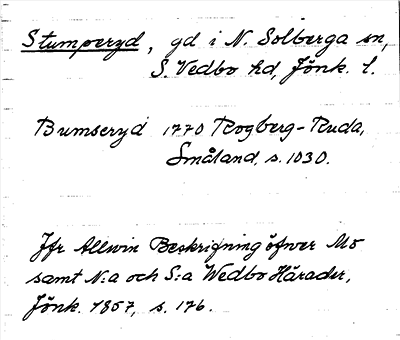 Stumperyd, gd i N. Solberga sn,
S. Vedbo hd, Jönk. l.
Bumseryd 1770 Rogberg-Ruda,
Småland, s. 1030.
Jfr Allvin Beskrifning öfver Mo
samt N:a och S:a Wedbo Härader,
Jönk. 1857, s. 176.